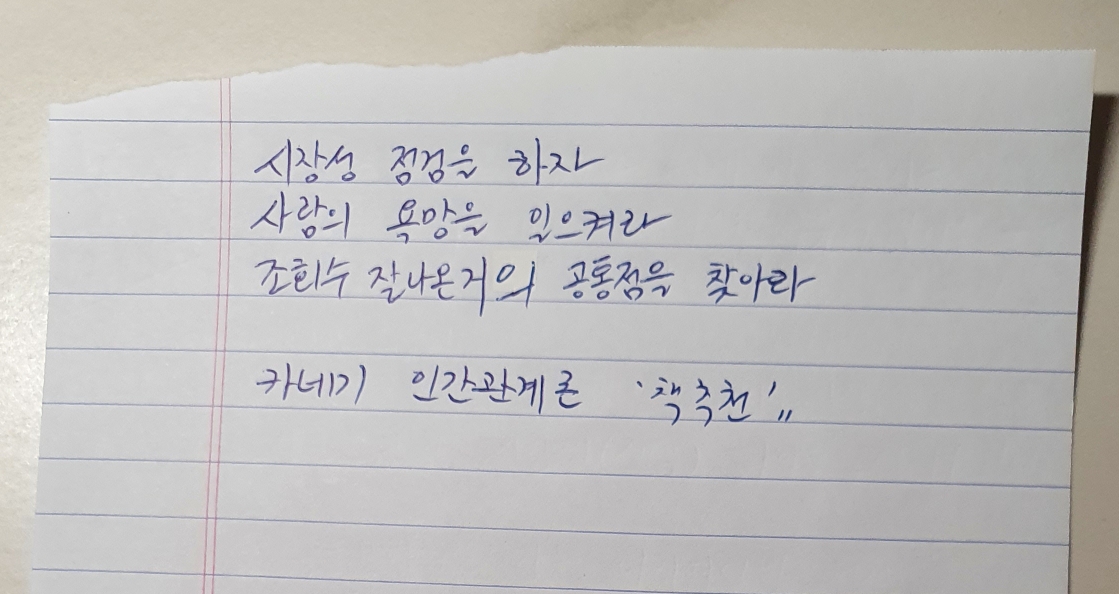 시장성 점검을 하자
사람의 욕망을 일으켜라
조회수 잘나온거의 공통점을 찾아라
카네기 인간관계론 '책추천',,